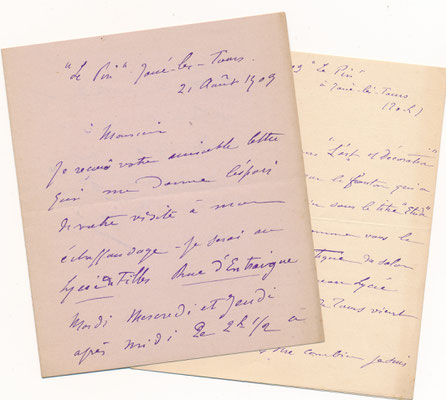 "Le Pin" Joué-les-Tours
21 Août 1909
Monsieur
Je reçois votre aimable lettre
qui me donne l'espoir
de votre visite à mon
échaffaudage - je serai au
Lycée de Filles Rue d'Entraigue
Mardi Mercredi et Jeudi
après midi De 2h 1/2 à
09 "Le Pin"
à Joué-lès-Tours
"L'art et Décoration"
le fronton qui a
sous le titre "Etude"
comme vous le
du salon
Lycée
de Tours vient
combien je suis